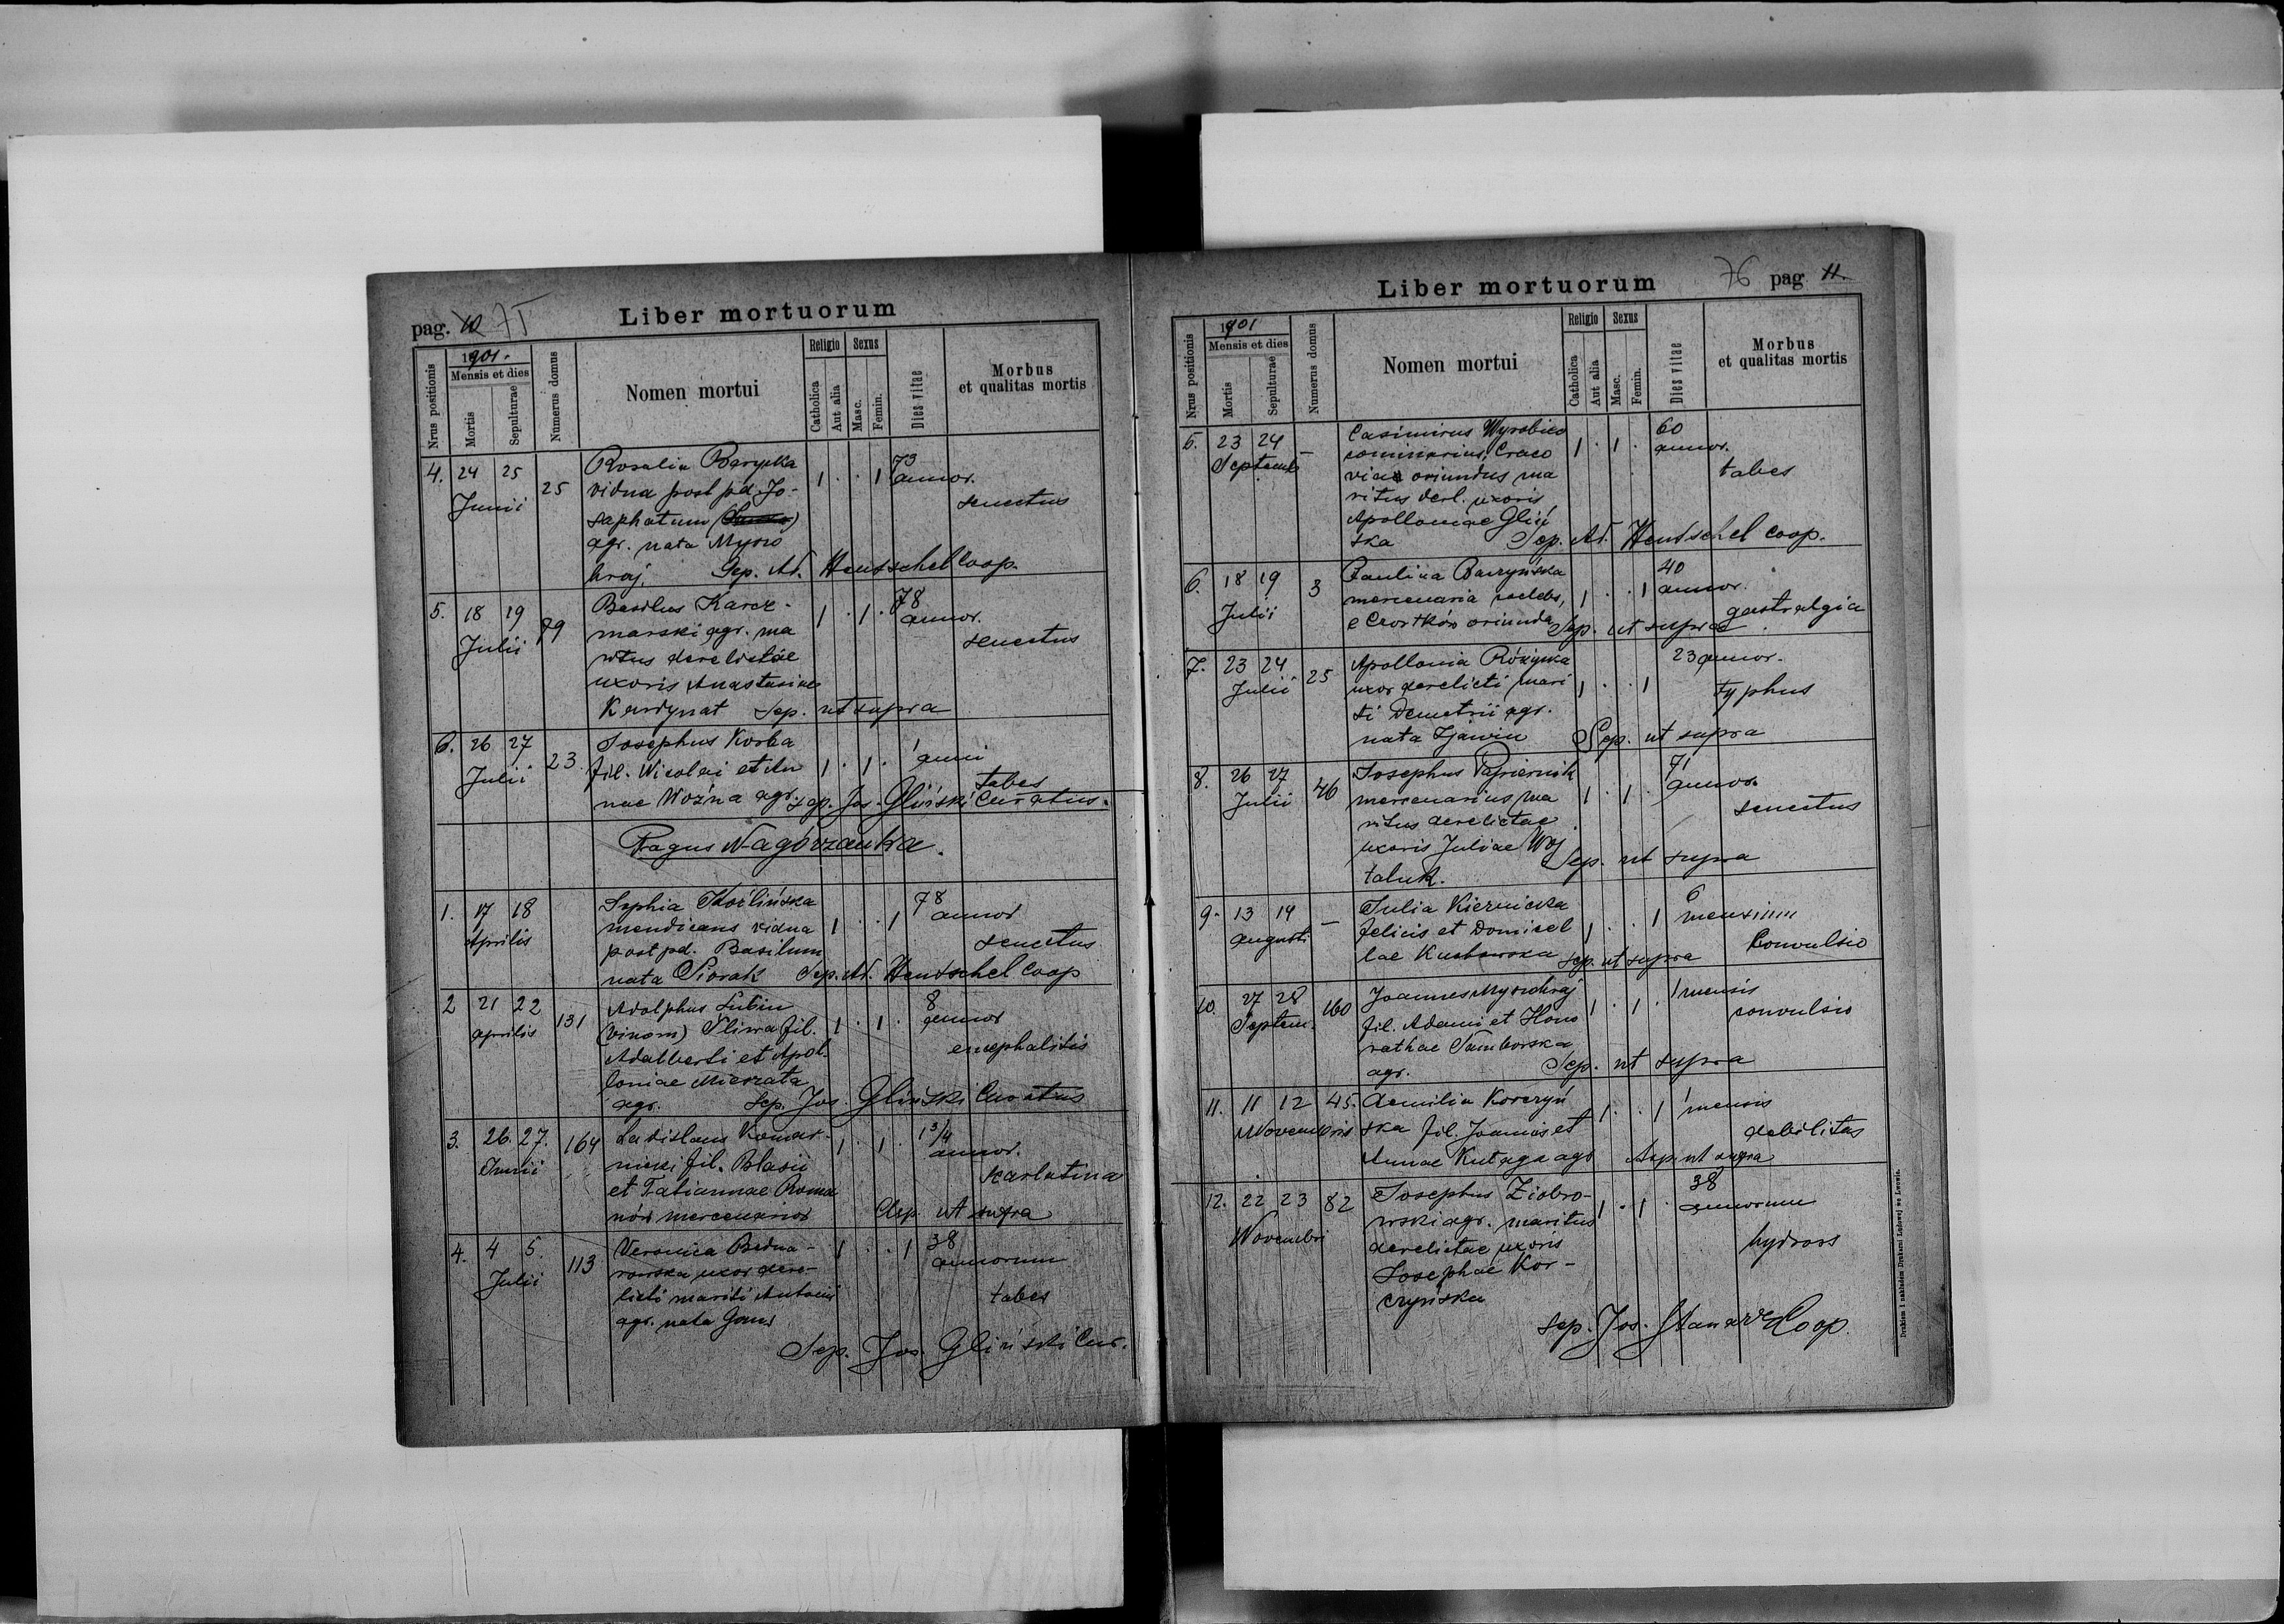 pag. 10 75
Liber mortuorum
Nrus positionis
1901.
Mensis et dies
Mortis
Sepulturae
Numerus domus
Nomen mortui
Religio
Catholica
Aut alia
Sexus
Masc.
Femin.
Dies vitae
Morbus
et qualitas mortis
4. 24 25 Junii 25
Rosalia
vidua post pd. Jo-
saphatum
agr. nata Mysro
kraj. Sep. Ad. Hentschel Coop.
1 . . 1 73 annor. senectus
5. 18 19 Julii 79
Basilius Karcz-
marski agr. ma
ritus derelictae
uxoris Anastasiae
Kurdynat Sep. ut supra
1 . 1 . 78 annor. senectus
6. 26 27 Julii 23.
Josephus Korba
fil. Nicolai et An
nae Woźna agr. Sep. Jos. Gliński Curatus.
1 . 1 . 1 anni tabes
Pagus Nagórzanka.
1. 17 18 Aprilis
Sophia Koźlińska
mendicans vidua
post pd. Basilium
nata Piorak Sep. Ad. Hentschel Coop
1 . . 1 78 annor senectus
2 21 22 aprilis 131
Adolphus Lubin
Śliwa fil.
Adalberti et Apol.
loniae
agr. Sep. Jos. Gliński Curatus
1 . 1 . 8 annor encephalitis
3. 26. 27. Junii 164
Ladislaus Komar-
nicki fil. Blasii
et Tatiannae Roma
nów mercenarior Sep. ut supra
1 . 1 . 1 3/4 annor. scarlatina
4. 4 5. Julii 113
Veronica Bedna-
rowska uxor dere-
licti mariti Antonii
agr. nata
Sep. Jos. Gliński Cur.
1 . . 1 38 annorum tabes
Liber mortuorum
76 pag 11.
Nrus positionis
1901
Mensis et dies
Mortis
Sepulturae
Numerus domus
Nomen mortui
Religio
Catholica
Aut alia
Sexus
Masc.
Femin.
Dies vitae
Morbus
et qualitas mortis
5. 23 24 Septemb –
Casimirus Wyrobiec
Craco
via oriundus ma
ritus derl. uxoris
Apolloniae Gliń
ska Sep. Ad. Hentschel coop.
1 . 1 . 60 annor. tabes
6. 18 19 Julii 3
Paulina Baczyńska
mercenaria caelebs,
e Czortków oriunda Sep. ut supra
1 . . 1 40 annor. gastralgia
7. 23 24 Julii 25
Apollonia Różycka
uxor derelicti mari
ti Demetrii agr.
nata Sep. ut supra
1 . . 1 23 annor. typhus
8. 26 27 Julii 46
Josephus Papiernik
mercenarius ma
ritus derelictae
uxoris Juliae Woj
taluk. Sep. ut supra
1 . 1 . 71 annor. senectus
9. 13 14 augusti –
Julia Kiernicka
felicis et Domicel
lae Sep. ut supra
1 . . 1 6 mensium Convulsio
10. 27 28 Septem. 160
Joannes Mysrokraj
fil. Adami et Hono
rathae Samborska
agr. Sep. ut supra
1 . 1 . 1 mensis convulsio
11. 11 12 Novembris 45.
Aemilia Korczyń
ska fil. Joannis et
Annae agr Sep ut supra
1 . . 1 1 mensis debilitas
12. 22 23 Novembri 82
Josephus Ziobro-
wski agr. maritus
derelictae uxoris
Josephae Kor-
czyńska
Sep. Jos. Coop.
1 . 1 . 38 annorum hydrops
Drukiem i nakładem Drukarni Ludowej we Lwowie.